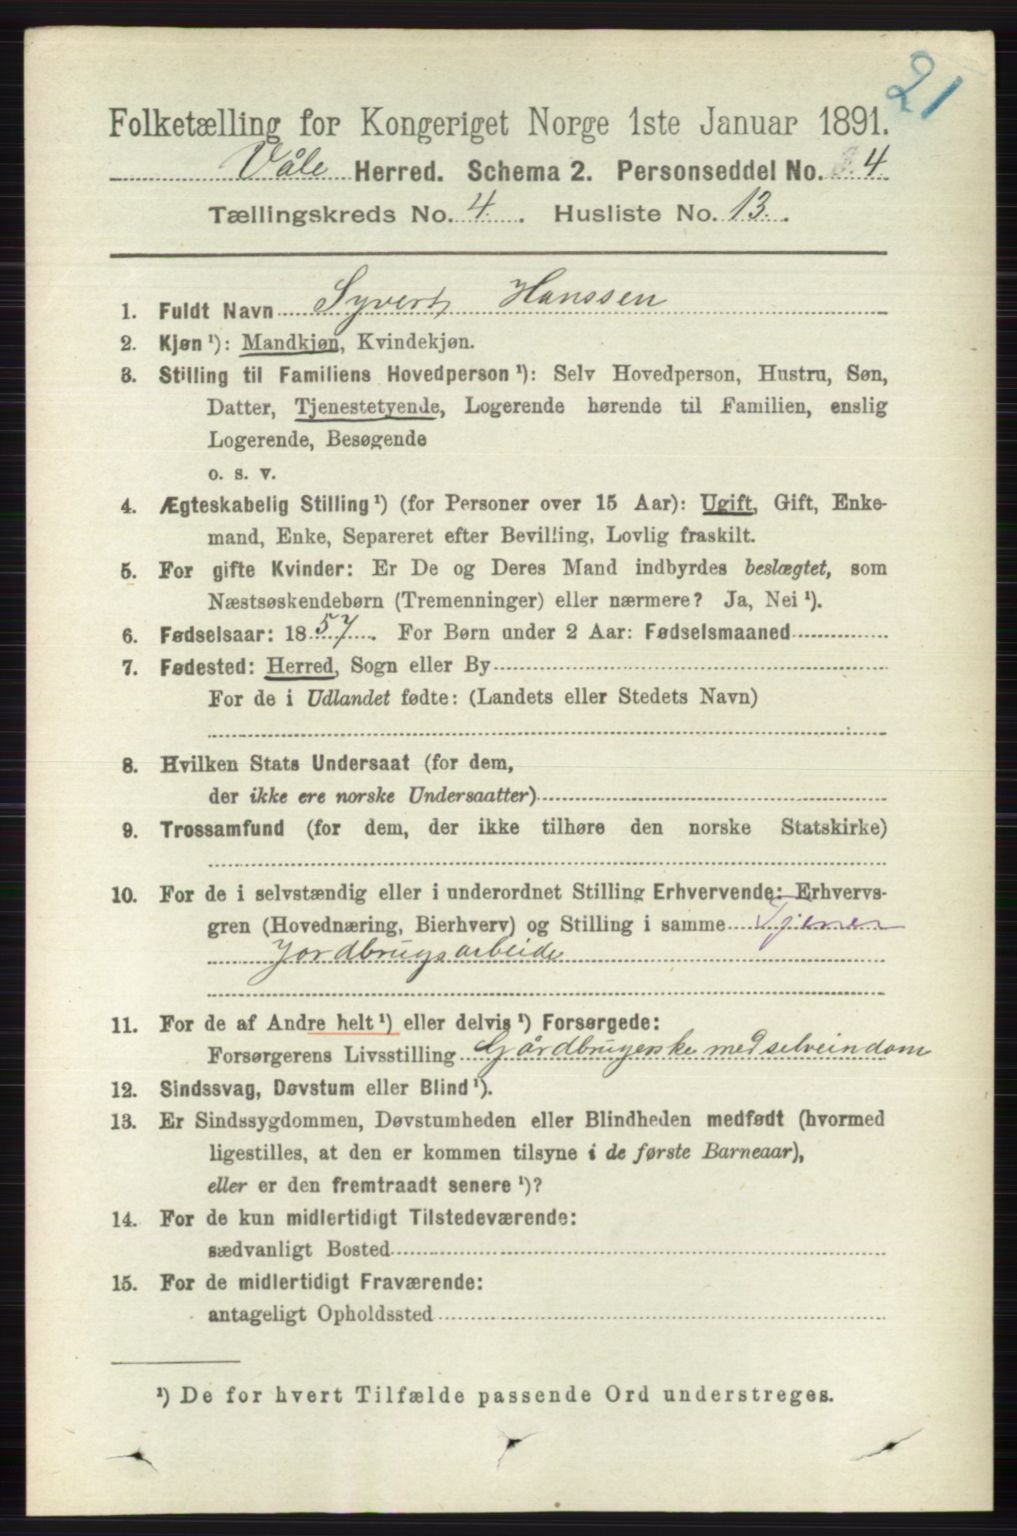 21
Folketælling for Kongeriget Norge 1ste Januar 1891.
Våle Herred. Schema 2. Personseddel No. 4
Tællingskreds No. 4. Husliste No. 13.
1. Fuldt Navn Syvert Hanssen
2. Kjøn ¹): Mandkjøn, Kvindekjøn.
3. Stilling til Familiens Hovedperson ¹): Selv Hovedperson, Hustru, Søn,
Datter, Tjenestetyende, Logerende hørende til Familien, enslig
Logerende, Besøgende
o. s. v.
4. Ægteskabelig Stilling ¹) (for Personer over 15 Aar): Ugift, Gift, Enke-
mand, Enke, Separeret efter Bevilling, Lovlig fraskilt.
5. For gifte Kvinder: Er De og Deres Mand indbyrdes beslægtet, som
Næstsøskendebørn (Tremenninger) eller nærmere? Ja, Nei ¹).
6. Fødselsaar: 1857. For Børn under 2 Aar: Fødselsmaaned
7. Fødested: Herred, Sogn eller By
For de i Udlandet fødte: (Landets eller Stedets Navn)
8. Hvilken Stats Undersaat (for dem,
der ikke ere norske Undersaatter)
9. Trossamfund (for dem, der ikke tilhøre den norske Statskirke)
10. For de i selvstændig eller i underordnet Stilling Erhvervende: Erhvervs-
gren (Hovednæring, Bierhverv) og Stilling i samme Tjener
Jordbrugsarbeide
11. For de af Andre helt ¹) eller delvis ¹) Forsørgede:
Forsørgerens Livsstilling Gårdbrugerske med selveindom
12. Sindssvag, Døvstum eller Blind ¹).
13. Er Sindssygdommen, Døvstumheden eller Blindheden medfødt (hvormed
ligestilles, at den er kommen tilsyne i de første Barneaar),
eller er den fremtraadt senere ¹)?
14. For de kun midlertidigt Tilstedeværende:
sædvanligt Bosted
15. For de midlertidigt Fraværende:
antageligt Opholdssted
¹) De for hvert Tilfælde passende Ord understreges.